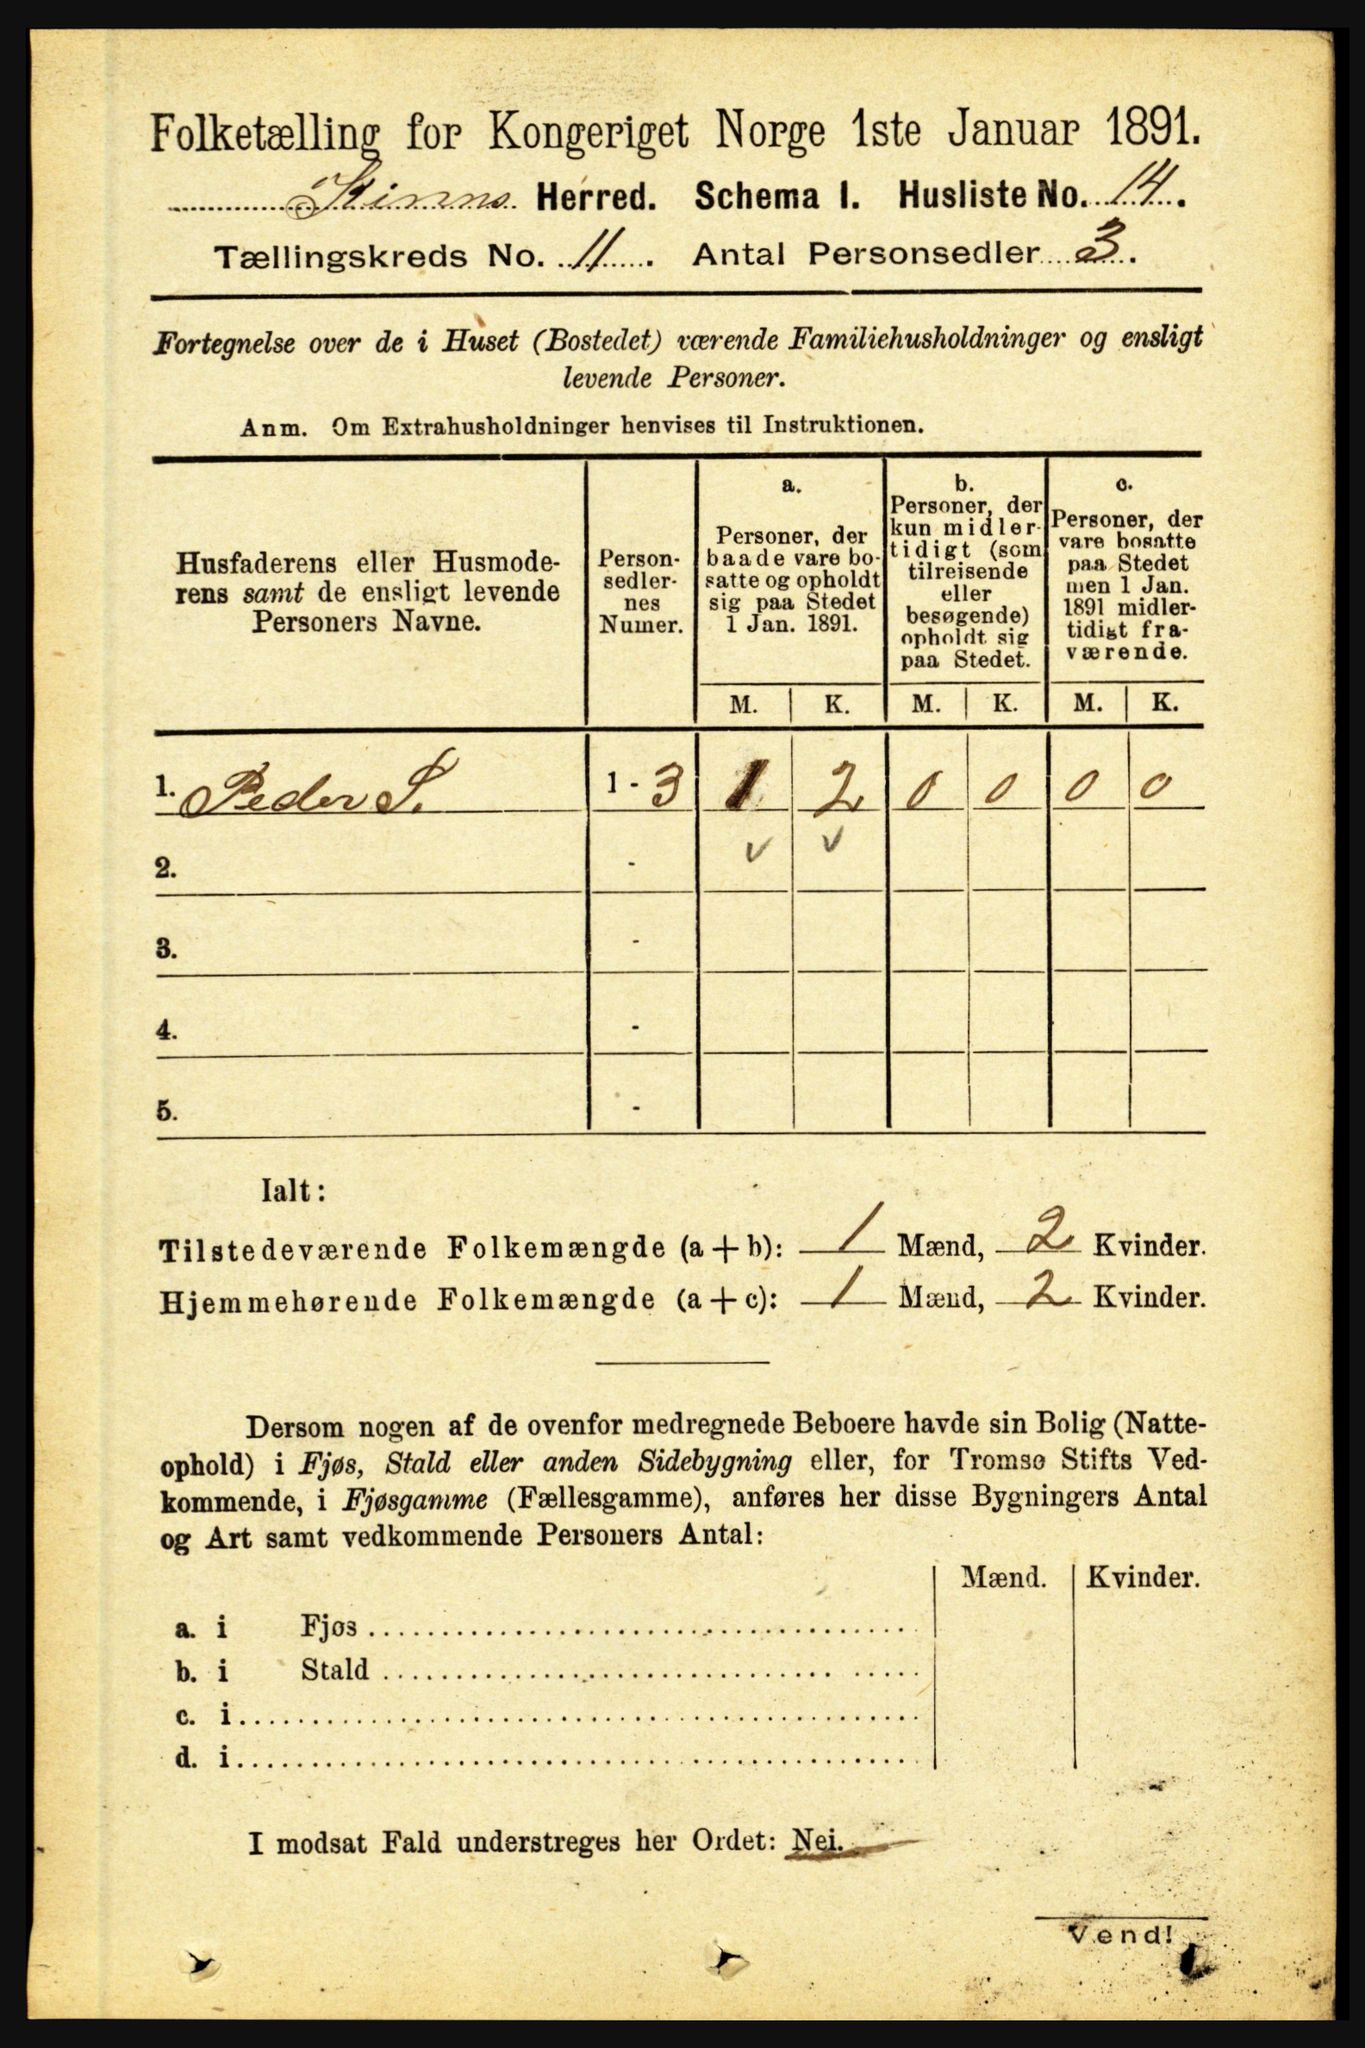 Folketælling for Kongeriget Norge 1ste Januar 1891.
Kinns Herred. Schema I. Husliste No. 14.
Tællingskreds No. 11. Antal Personsedler 3.
Fortegnelse over de i Huset (Bostedet) værende Familiehusholdninger og ensligt
levende Personer.
Anm. Om Extrahusholdninger henvises til Instruktionen.
Husfaderens eller Husmode-
rens samt de ensligt levende
Personers Navne.
Person-
sedler-
nes
Numer.
a.
Personer, der
baade vare bo-
satte og opholdt
sig paa Stedet
1 Jan. 1891.
b.
Personer, der
kun midler-
tidigt (som
tilreisende
eller
besøgende)
opholdt sig
paa Stedet.
c.
Personer, der
vare bosatte
paa Stedet
men 1 Jan.
1891 midler-
tidigt fra-
værende.
M. K. M. K. M. K.
1. Peder S. 1 - 3 1 2 0 0 0 0
2. - v v
3. -
4. -
5. -
Ialt:
Tilstedeværende Folkemængde (a + b): 1 Mænd, 2 Kvinder.
Hjemmehørende Folkemængde (a + c): 1 Mænd, 2 Kvinder.
Dersom nogen af de ovenfor medregnede Beboere havde sin Bolig (Natte-
ophold) i Fjøs, Stald eller anden Sidebygning eller, for Tromsø Stifts Ved-
kommende, i Fjøsgamme (Fællesgamme), anføres her disse Bygningers Antal
og Art samt vedkommende Personers Antal:
Mænd. Kvinder.
a. i Fjøs
b. i Stald
c. i
d. i
I modsat Fald understreges her Ordet: Nei.
Vend!